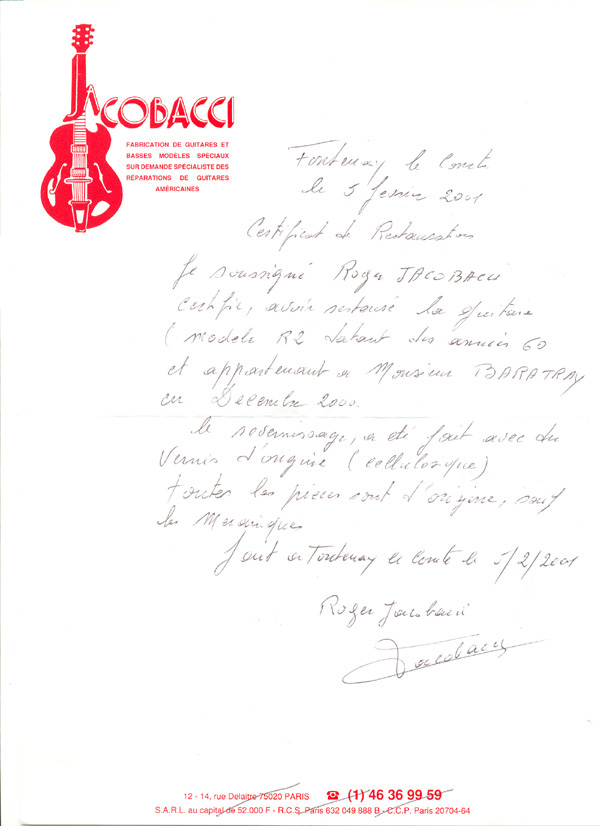 JACOBACCI
FABRICATION DE GUITARES ET
BASSES MODÈLES SPÉCIAUX
SUR DEMANDE SPÉCIALISTE DES
RÉPARATIONS DE GUITARES
AMÉRICAINES
Fontenay le Comte
le 5 fevrier 2001
Certificat de Restauration
Je soussigné Roger JACOBACCI
certifie, avoir restauré la guitare
(modele R2 datant des années 60
et appartenant a Monsieur BARATRAY
en Décembre 2000.
le revernissage, a été fait avec du
Vernis d'origine (cellulosique)
toutes les pieces sont d'origine, sauf
les Mecaniques
fait a Fontenay le Comte le 5/2/2001
Roger Jacobacci
Jacobacci
12 - 14, rue Delaitre 75020 PARIS ☎ (1) 46 36 99 59
S.A.R.L. au capital de 52.000 F - R.C.S. Paris 632 049 888 B - C.C.P. Paris 20704-64